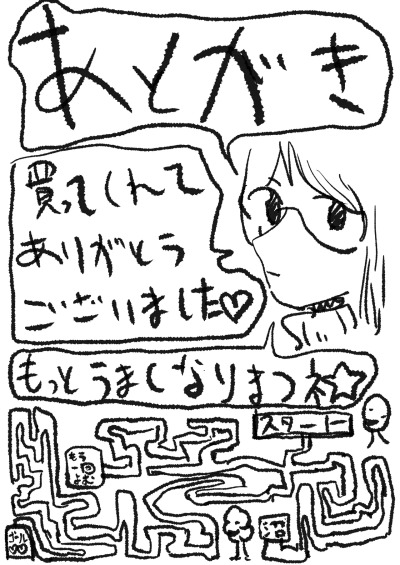 あとがき
買ってくれて
ありがとう
ございました♡
もっとうまくなりますネ☆
スタート
もう
一回
よむ
沼
ゴール
♡♡